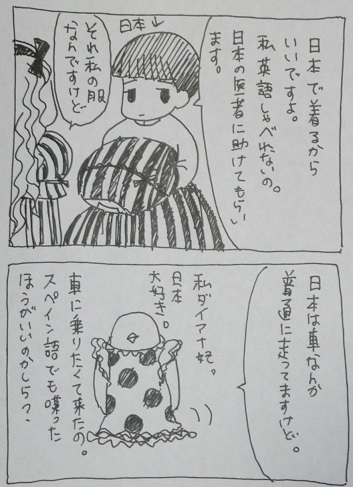 日本で着るから
いいですよ。
私英語しゃべれないの。
日本の医者に助けてもらい
ます。
日本↓
それ私の服
なんですけど
日本は車なんか
普通に走ってますけど。
私ダイアナ妃。
日本
大好き。
車に乗りたくて来たの。
スペイン語でも喋った
ほうがいいのかしら?